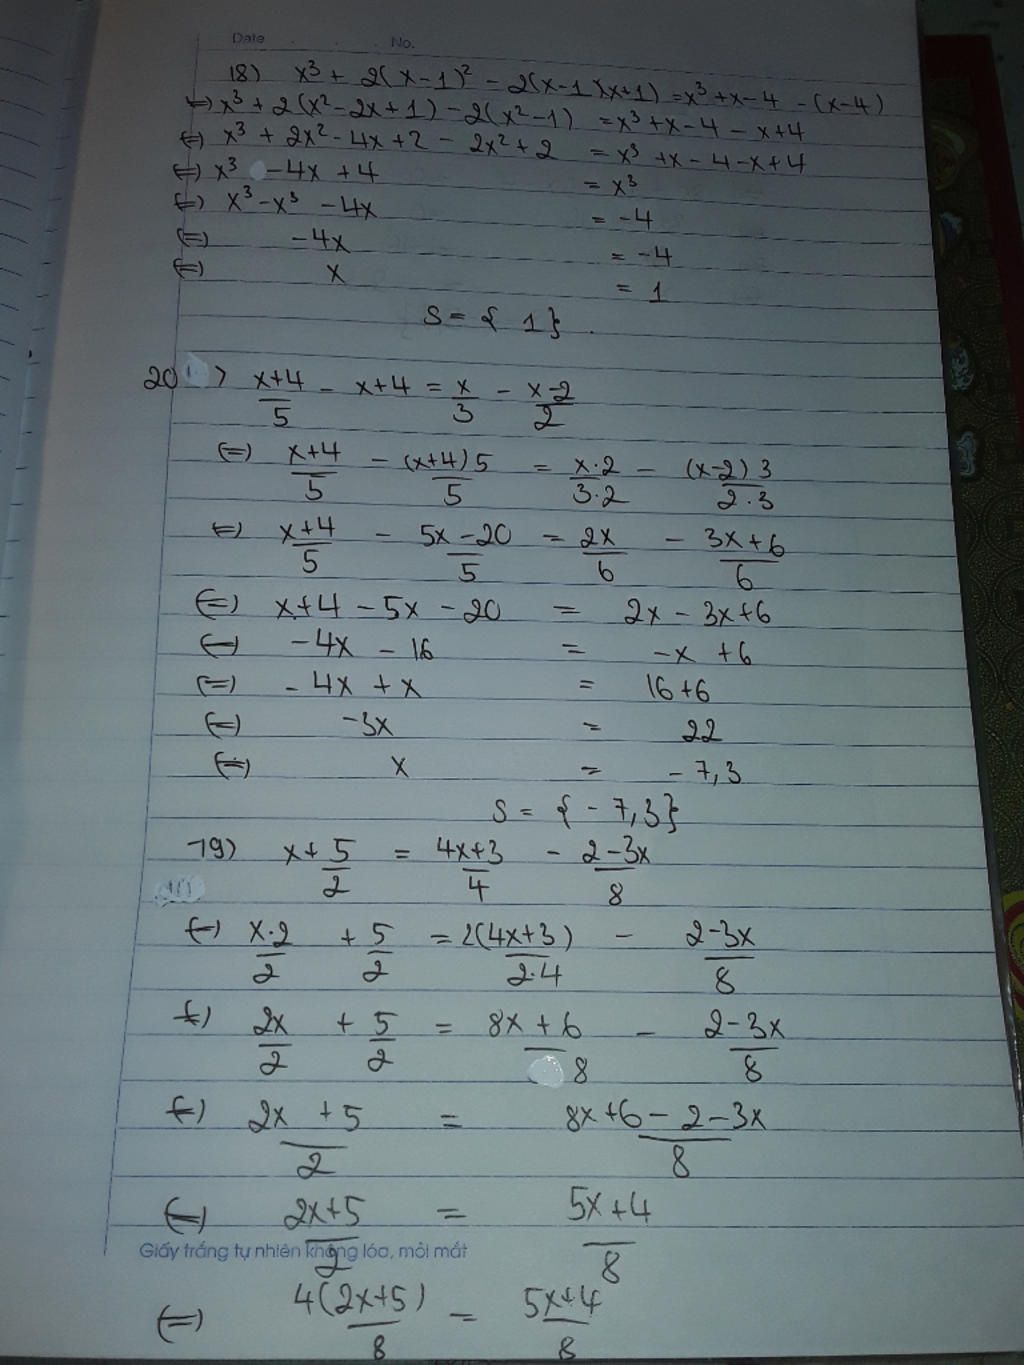 Date . . . No.
18) x³ + 2(x-1)² - 2(x-1)(x+1) = x³+x-4 - (x-4)
⇔) x³ + 2(x²-2x+1) - 2(x²-1) = x³+x-4-x+4
⇔) x³ + 2x²-4x+2 - 2x²+2 = x³+x-4-x+4
⇔) x³ -4x+4 = x³
⇔) x³-x³ -4x = -4
⇔) -4x = -4
⇔) x = 1
S = { 1 } .
20 ) (x+4)/5 - x+4 = x/3 - (x-2)/2
⇔) (x+4)/5 - (x+4)5/5 = x·2/3·2 - (x-2)3/2·3
⇔) (x+4)/5 - (5x-20)/5 = 2x/6 - (3x+6)/6
⇔) x+4-5x-20 = 2x-3x+6
⇔) -4x-16 = -x+6
⇔) -4x+x = 16+6
⇔) -3x = 22
⇔) x = -7,3
S = {-7,3}
19) x+5/2 = (4x+3)/4 - (2-3x)/8
⇔) x·2/2 + 5/2 = 2(4x+3)/2·4 - (2-3x)/8
⇔) 2x/2 + 5/2 = (8x+6)/8 - (2-3x)/8
⇔) (2x+5)/2 = (8x+6-2-3x)/8
⇔) (2x+5)/2 = (5x+4)/8
Giấy trắng tự nhiên không lóa, mỏi mắt
⇔) 4(2x+5)/8 = (5x+4)/8